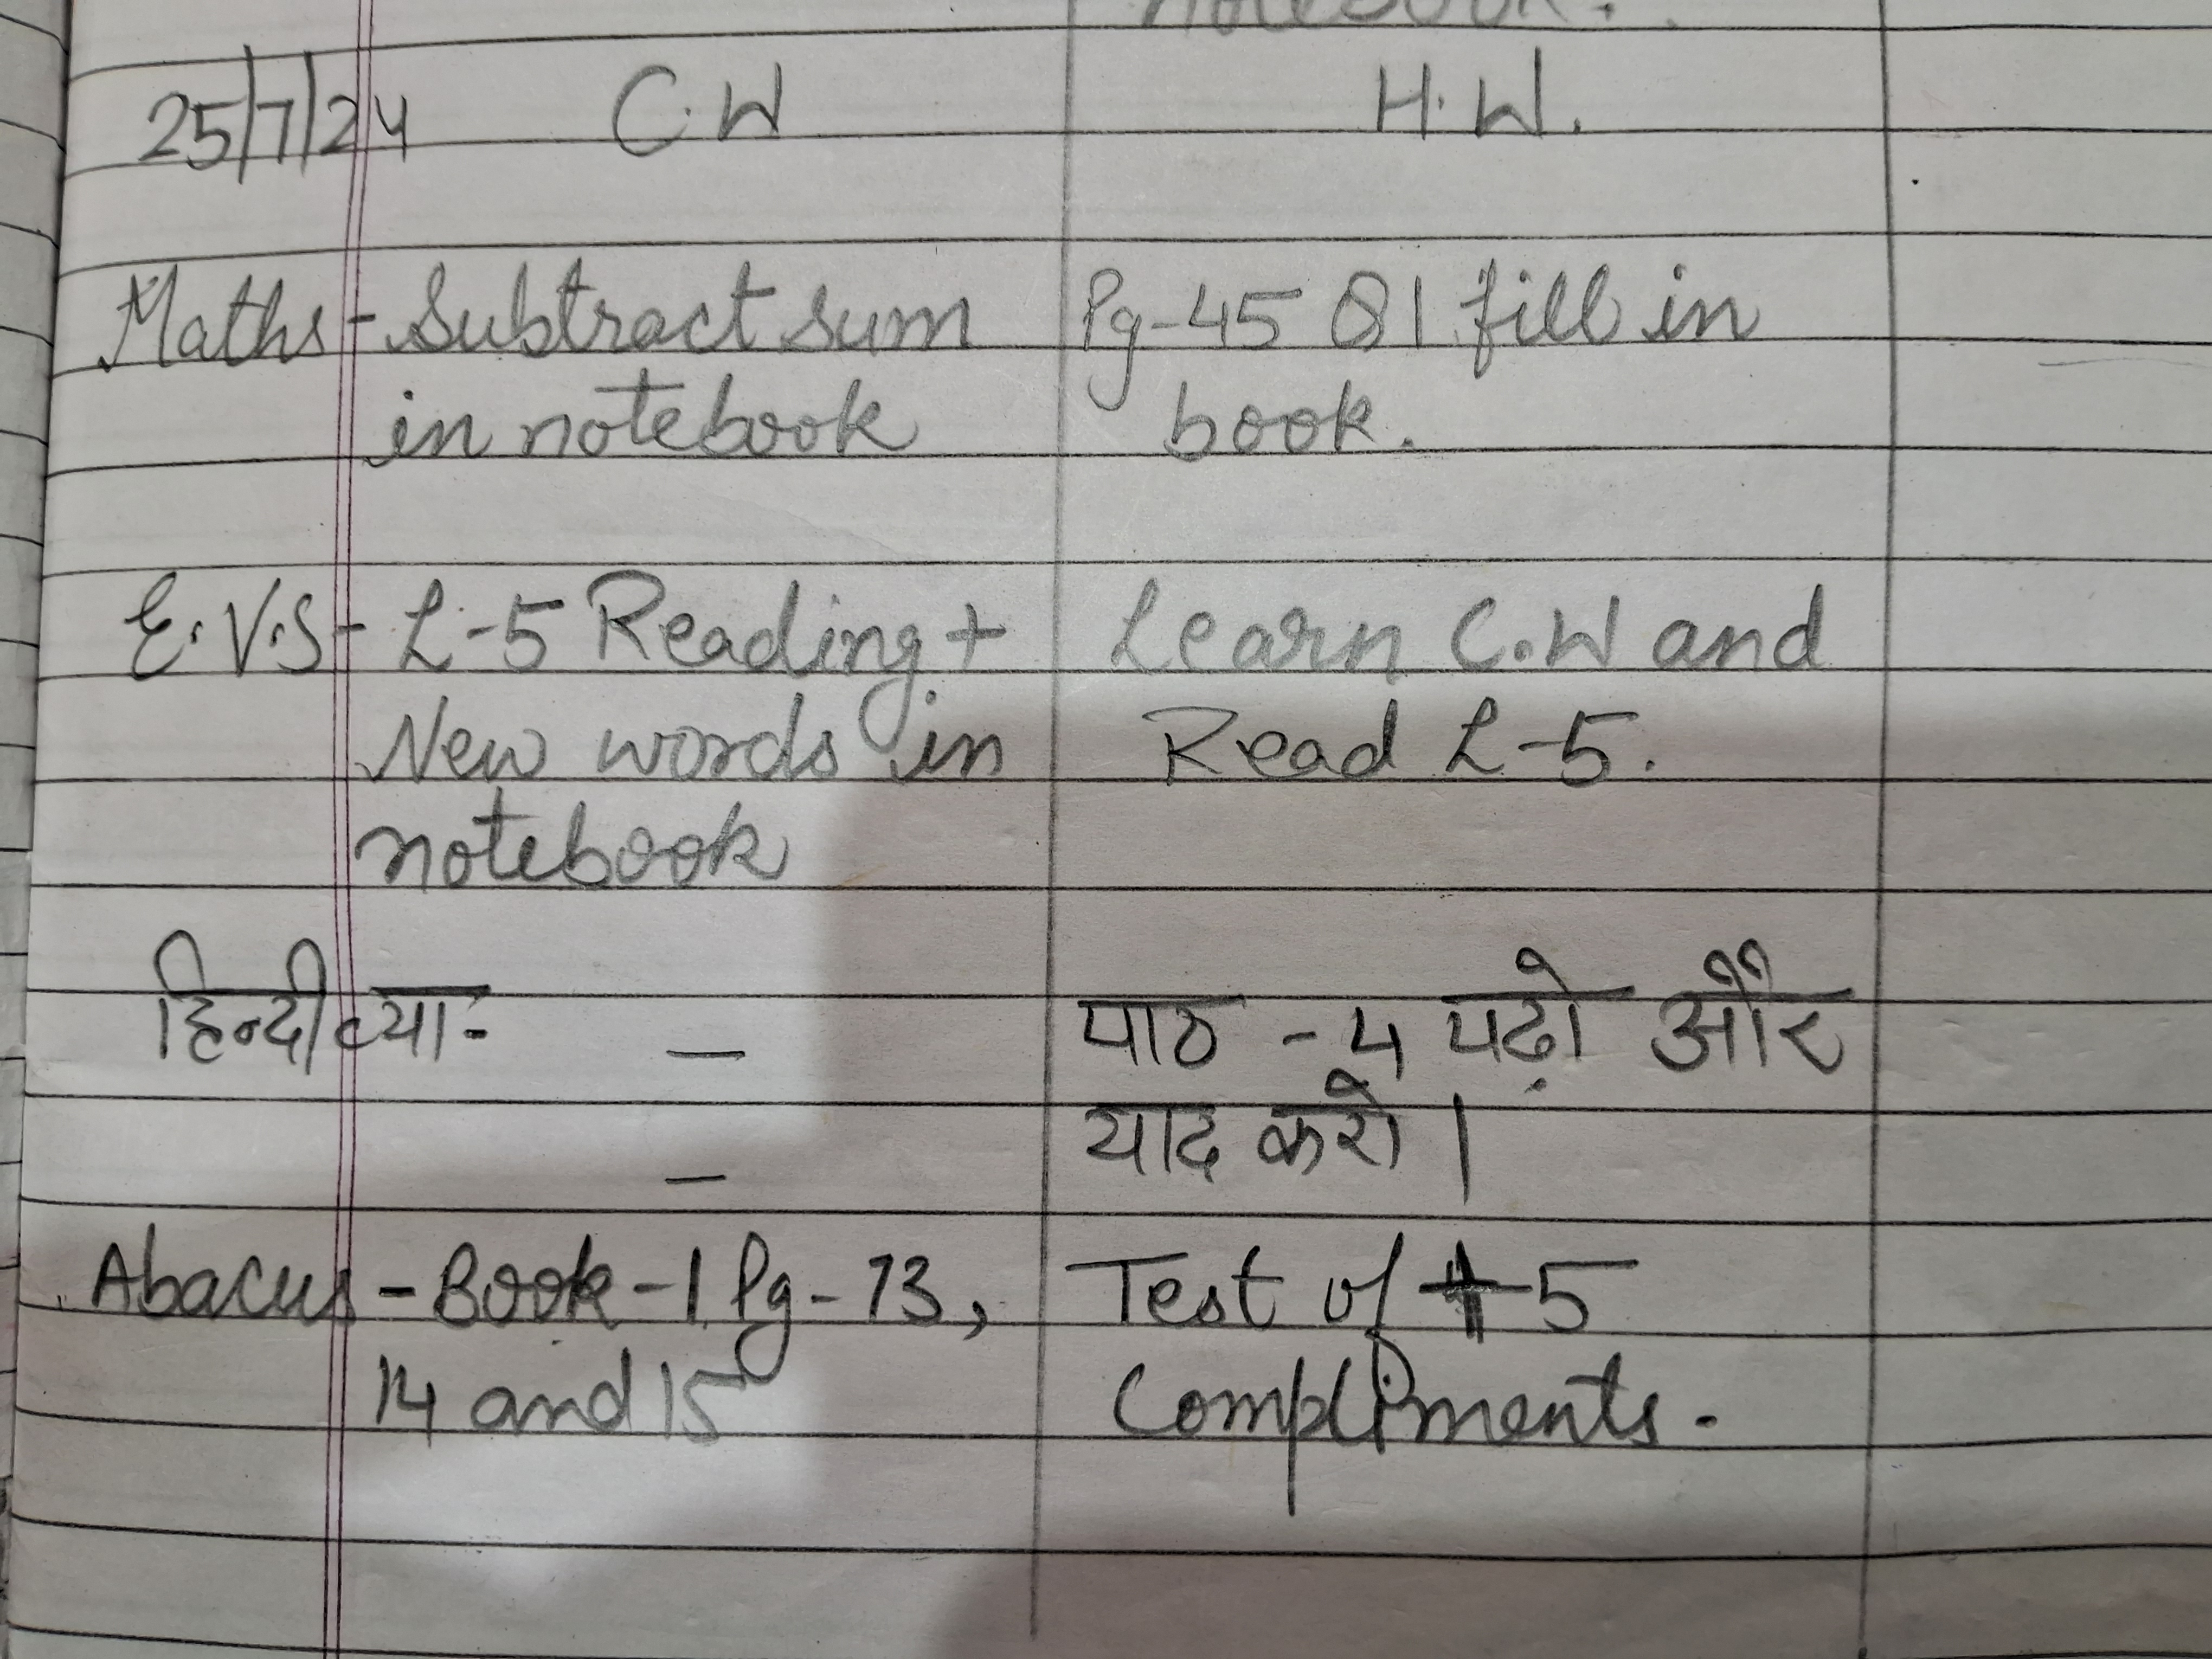 notebook.
25/7/24 C.W H.W.
Maths - Subtract sum Pg-45 Q1 fill in
in notebook book.
E.V.S - L-5 Reading + Learn C.W and
New words in Read L-5.
notebook
हिन्दी व्या- — पाठ - 4 पढ़ो और
— याद करो ।
Abacus - Book-1 Pg-13, Test of +5
14 and 15 Compliments.